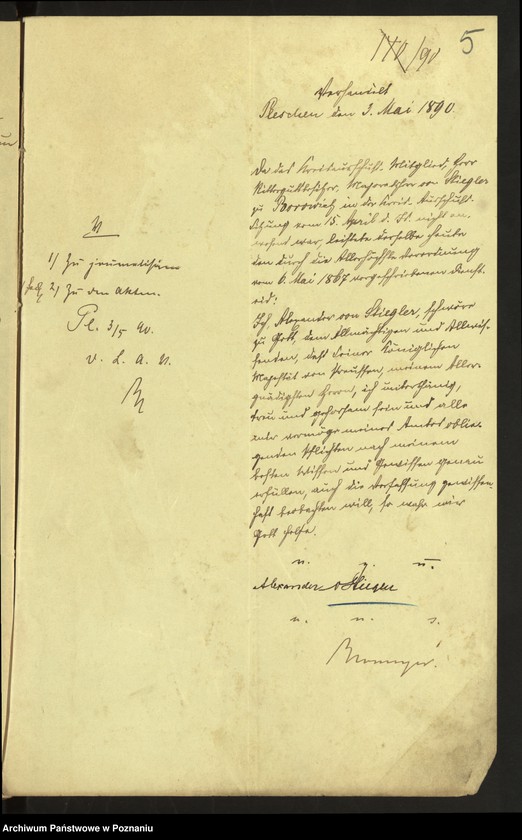 170/90
5
Verhandelt
Pleschen den 3. Mai 1890.
Da das Kreisausschuß-Mitglied, Herr
Rittergutsbesitzer, von Stiegler
zu in der Kreis-Ausschuß-
Sitzung vom 15. April d. Js. nicht an-
wesend war, leistete derselbe heute
den durch die Allerhöchste Verordnung
vom 6. Mai 1867 vorgeschriebenen Dienst-
eid:
Ich, Alexander von Stiegler, schwöre
zu Gott, dem Allmächtigen und Allwis-
senden, daß Seiner Königlichen
Majestät von Preussen, meinem Aller-
gnädigsten Herrn, ich unterthänig,
treu und gehorsam sein und alle
mir vermöge meines Amtes oblie-
genden Pflichten nach meinem
besten Wissen und Gewissen genau
erfüllen, auch die Verfassung gewissen-
haft beobachten will, so wahr mir
Gott helfe.
v. g. u.
Alexander v Stiegler
a. u. s.
V
1) Zu journalisiren
2) Zu den Akten.
Pl. 3/5 90.
D. L. A. V.
Archiwum Państwowe w Poznaniu